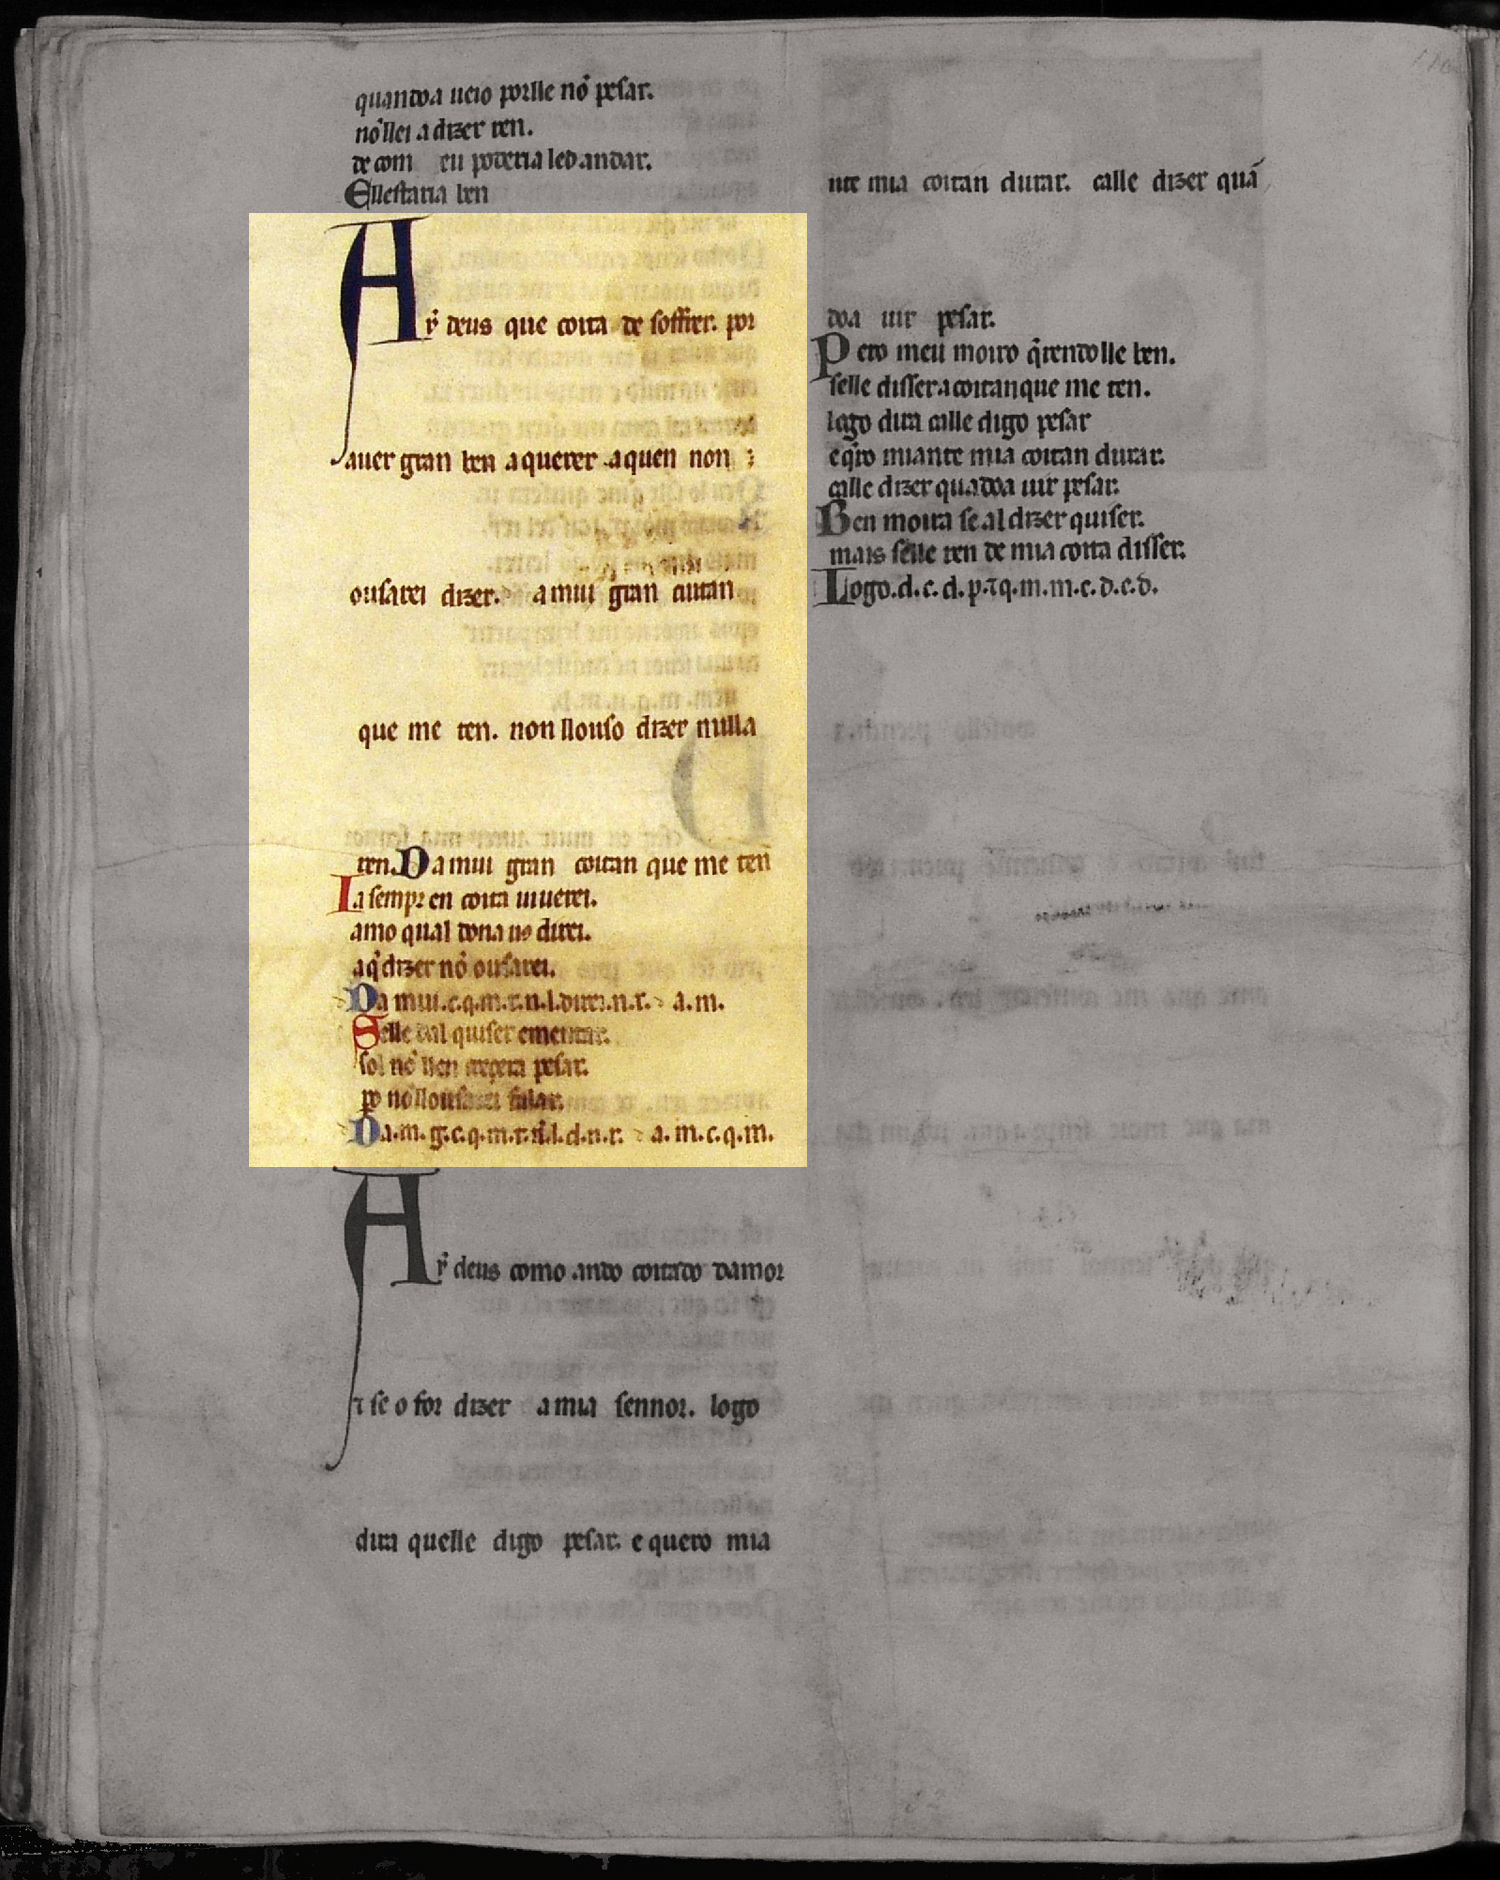 quandoa ueio porlle nõ pesar.
nõllei a dizer ren.
de com eu poderia led andar.
Ellestaria ben
Aẏ deus que coita de soffrer. por
auer gran ben a querer a quen non
ousarei dizer. a mui gran coitan
que me ten. non llouso dizer nulla
ren. Da mui gran coitan que me ten
Ia sempr en coita uiuerei.
amo qual dona uo direi.
a q̃ dizer nõ ousarei.
Da mui.c.q.m.t.n.l.direi.n.r. a.m.
Selle dal quiser ementar.
sol nõ llen crecera pesar.
po nõllousarei falar.
Da.m.g.c.q.m.t.n.l.d.n.r. a.m.c.q.m.
Aẏ deus como ando coitado damor
⁊ se o for dizer a mia sennor. logo
dira quelle digo pesar. e quero mia
nte mia coitan durar. calle dizer quã
doa uir pesar.
Pero meu moiro q̃rendolle ben.
selle dissera coitanque me ten.
logo dira calle digo pesar
e q̃ro miante mia coitan durar.
calle dizer quadoa uir pesar.
Ben moira se al dizer quiser.
mais selle ren de mia coita disser.
Logo.d.c.d.p.⁊q.m.m.c.d.c.d.